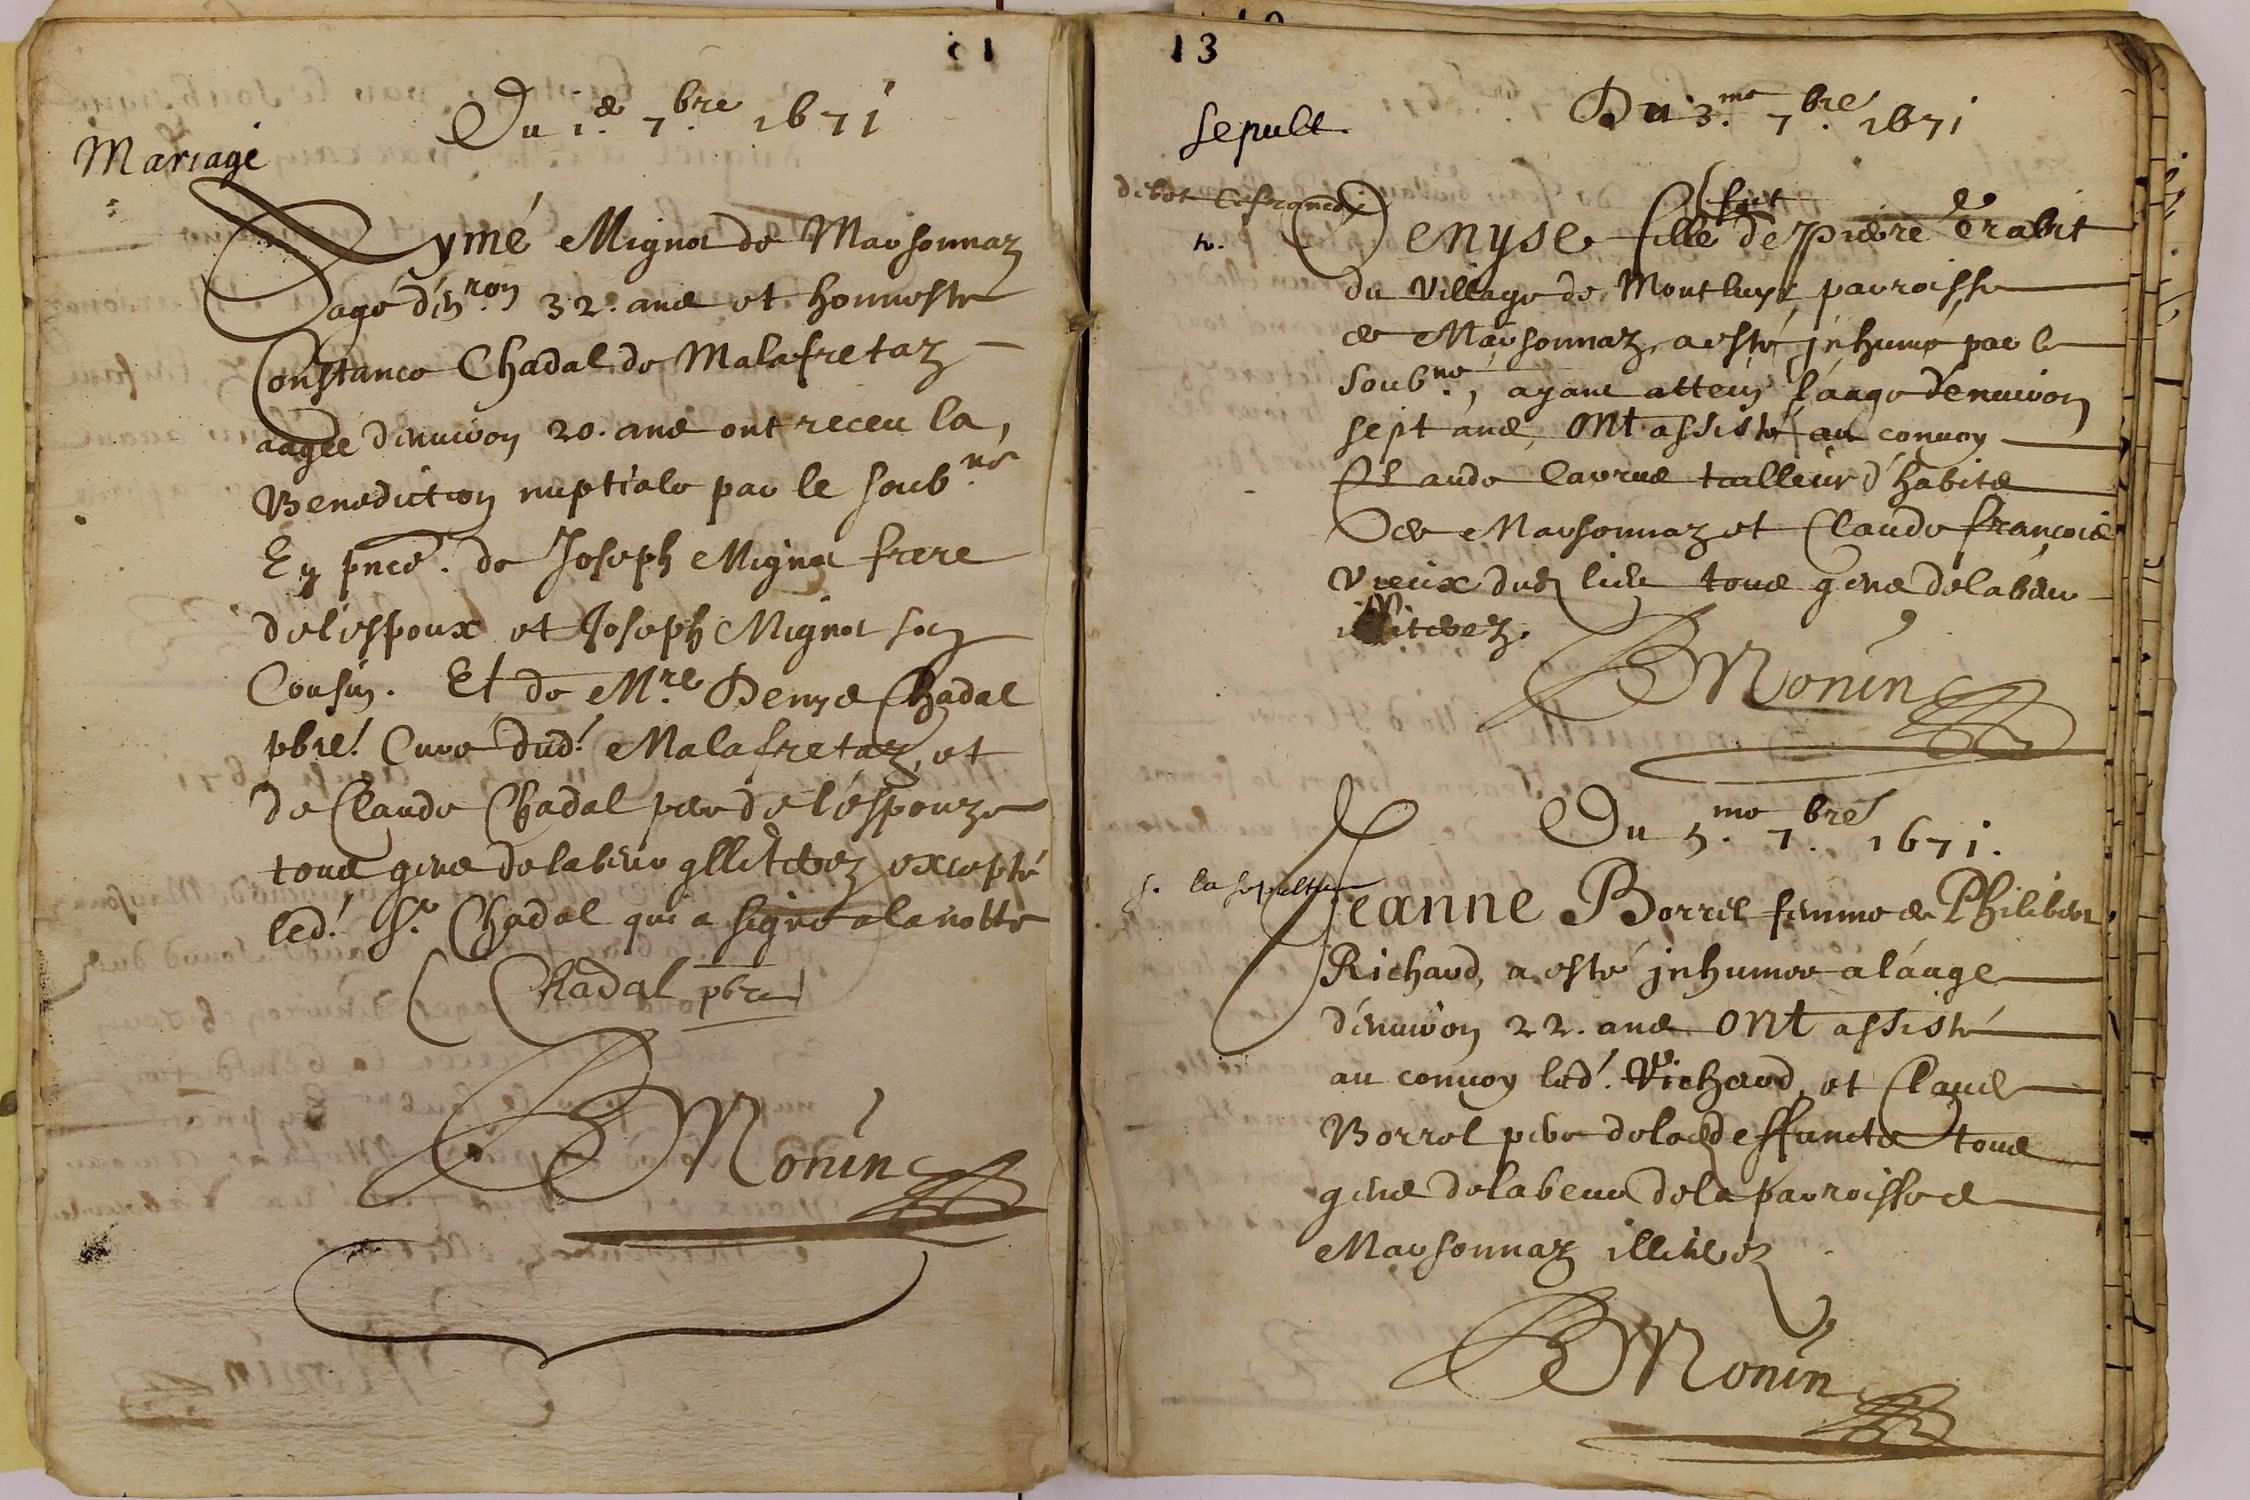 Du 1.er 7.bre 1671
Mariage
Aymé Mignot de Marsonnaz
agé d'en.ron 32. ans et honneste
Constance Chadal de Malafretaz
aagée d'environ 20. ans ont receu la
Benediction nuptiale par le soub.né
En pnce. de Joseph Mignot frere
de l'espoux et Joseph Mignot son
Cousin. Et de M.re Denys Chadal
pbre. Curé dud. Malafretaz, et
de Claude Chadal pere de l'espouze
tous gens de labeur illiterez excepté
led. S.r Chadal qui a signé a la notte
Chadal pbre
BMonin
13
Du 3.me 7.bre 1671
sepult.
Denyse fille de Pierre
du Village de Montluys, parroisse
de Marsonnaz, a esté inhumé par le
soub.né, ayant attein l'aage d'environ
sept ans, ont assisté au convoy
Claude tailleur d'habits
de Marsonnaz et Claude françois
Vieux dud lieu tous gens de labeur
illiterez.
BMonin
Du 5.me 7.bre 1671.
la sepulture
Jeanne Borrel femme de Philibert
Richard, a esté inhumee a l'aage
d'environ 22. ans ont assisté
au convoy led. Richard, et Claude
Borrel pere de lad deffuncte tous
gens de labeur de la parroisse de
Marsonnaz illiterez
BMonin